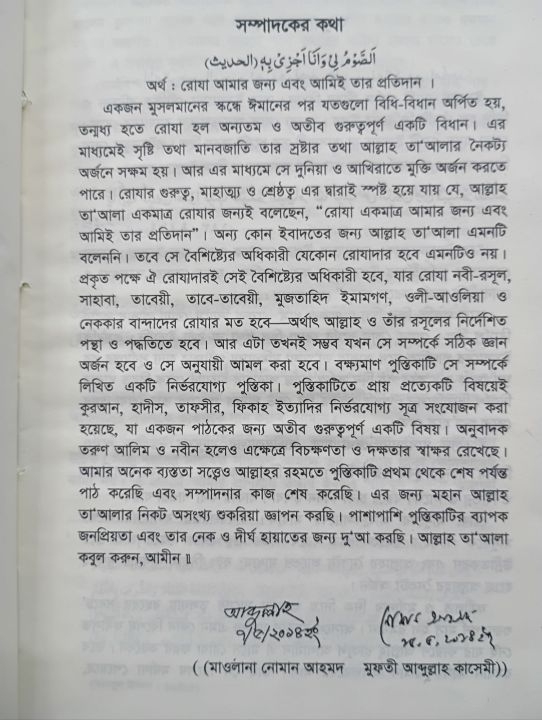 সম্পাদকের কথা
اَلصَّوْمُ لِىْ وَاَنَا اَجْزِىْ بِهٖ (الحديث)
অর্থ : রোযা আমার জন্য এবং আমিই তার প্রতিদান ।
একজন মুসলমানের স্কন্ধে ঈমানের পর যতগুলো বিধি-বিধান অর্পিত হয়,
তন্মধ্য হতে রোযা হল অন্যতম ও অতীব গুরুত্বপূর্ণ একটি বিধান। এর
মাধ্যমেই সৃষ্টি তথা মানবজাতি তার স্রষ্টার তথা আল্লাহ তা'আলার নৈকট্য
অর্জনে সক্ষম হয়। আর এর মাধ্যমে সে দুনিয়া ও আখিরাতে মুক্তি অর্জন করতে
পারে। রোযার গুরুত্ব, মাহাত্ম্য ও শ্রেষ্ঠত্ব এর দ্বারাই স্পষ্ট হয়ে যায় যে, আল্লাহ
তা'আলা একমাত্র রোযার জন্যই বলেছেন, “রোযা একমাত্র আমার জন্য এবং
আমিই তার প্রতিদান”। অন্য কোন ইবাদতের জন্য আল্লাহ তা'আলা এমনটি
বলেননি। তবে সে বৈশিষ্ট্যের অধিকারী যেকোন রোযাদার হবে এমনটিও নয়।
প্রকৃত পক্ষে ঐ রোযাদারই সেই বৈশিষ্ট্যের অধিকারী হবে, যার রোযা নবী-রসূল,
সাহাবা, তাবেয়ী, তাবে-তাবেয়ী, মুজতাহিদ ইমামগণ, ওলী-আওলিয়া ও
নেককার বান্দাদের রোযার মত হবে—অর্থাৎ আল্লাহ ও তাঁর রসূলের নির্দেশিত
পন্থা ও পদ্ধতিতে হবে। আর এটা তখনই সম্ভব যখন সে সম্পর্কে সঠিক জ্ঞান
অর্জন হবে ও সে অনুযায়ী আমল করা হবে। বক্ষ্যমাণ পুস্তিকাটি সে সম্পর্কে
লিখিত একটি নির্ভরযোগ্য পুস্তিকা। পুস্তিকাটিতে প্রায় প্রত্যেকটি বিষয়েই
কুরআন, হাদীস, তাফসীর, ফিকাহ ইত্যাদির নির্ভরযোগ্য সূত্র সংযোজন করা
হয়েছে, যা একজন পাঠকের জন্য অতীব গুরুত্বপূর্ণ একটি বিষয়। অনুবাদক
তরুণ আলিম ও নবীন হলেও এক্ষেত্রে বিচক্ষণতা ও দক্ষতার স্বাক্ষর রেখেছে।
আমার অনেক ব্যস্ততা সত্ত্বেও আল্লাহর রহমতে পুস্তিকাটি প্রথম থেকে শেষ পর্যন্ত
পাঠ করেছি এবং সম্পাদনার কাজ শেষ করেছি। এর জন্য মহান আল্লাহ
তা'আলার নিকট অসংখ্য শুকরিয়া জ্ঞাপন করছি। পাশাপাশি পুস্তিকাটির ব্যাপক
জনপ্রিয়তা এবং তার নেক ও দীর্ঘ হায়াতের জন্য দু'আ করছি। আল্লাহ তা'আলা
কবুল করুন, আমীন ॥
আব্দুল্লাহ
( (মাওলানা নোমান আহমদ মুফতী আব্দুল্লাহ কাসেমী))